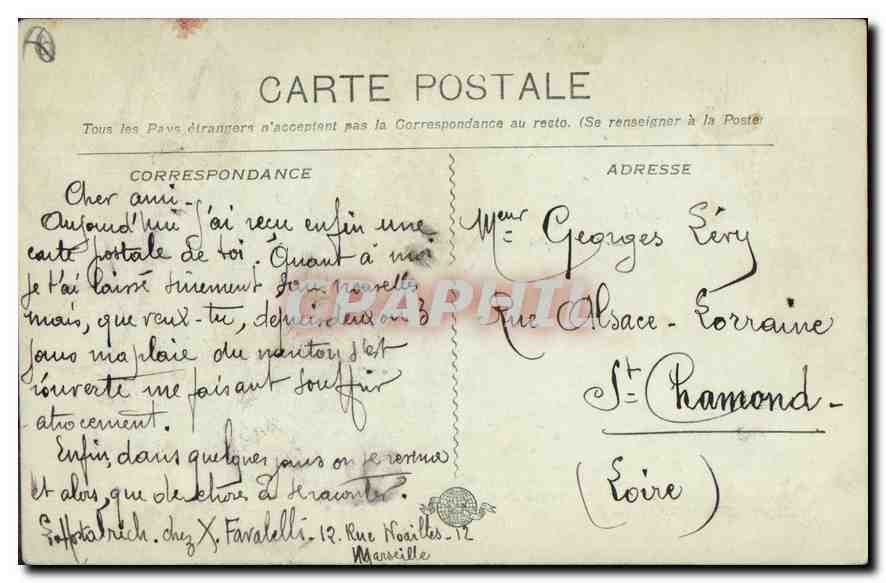 CARTE POSTALE
Tous les Pays étrangers n'acceptent pas la Correspondance au recto. (Se renseigner à la Poste)
CORRESPONDANCE
Cher ami -
Aujourd'hui j'ai reçu enfin une
carte postale de toi. Quant à moi
je t'ai laissé sans nouvelles
mais, que veux-tu, depuis deux ou 3
jours ma plaie du menton s'est
rouverte me faisant souffrir
atrocement.
Enfin, dans quelques jours on se reverra
et alors, que de choses à se raconter.
chez X. Favalelli - 12. Rue Noailles - 12
Marseille
ADRESSE
Meur Georges Léry
Rue Alsace - Lorraine
St Chamond -
(Loire)
CARPHIL